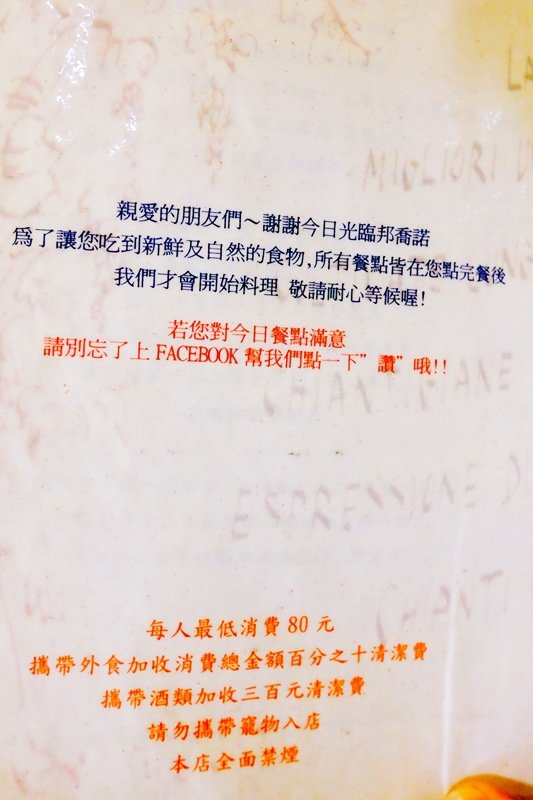 親愛的朋友們～謝謝今日光臨邦喬諾
為了讓您吃到新鮮及自然的食物,所有餐點皆在您點完餐後
我們才會開始料理 敬請耐心等候喔!
若您對今日餐點滿意
請別忘了上 FACEBOOK 幫我們點一下”讚”哦!!
MIGLIORI
ESPRESSIONE
每人最低消費 80 元
攜帶外食加收消費總金額百分之十清潔費
攜帶酒類加收三百元清潔費
請勿攜帶寵物入店
本店全面禁煙